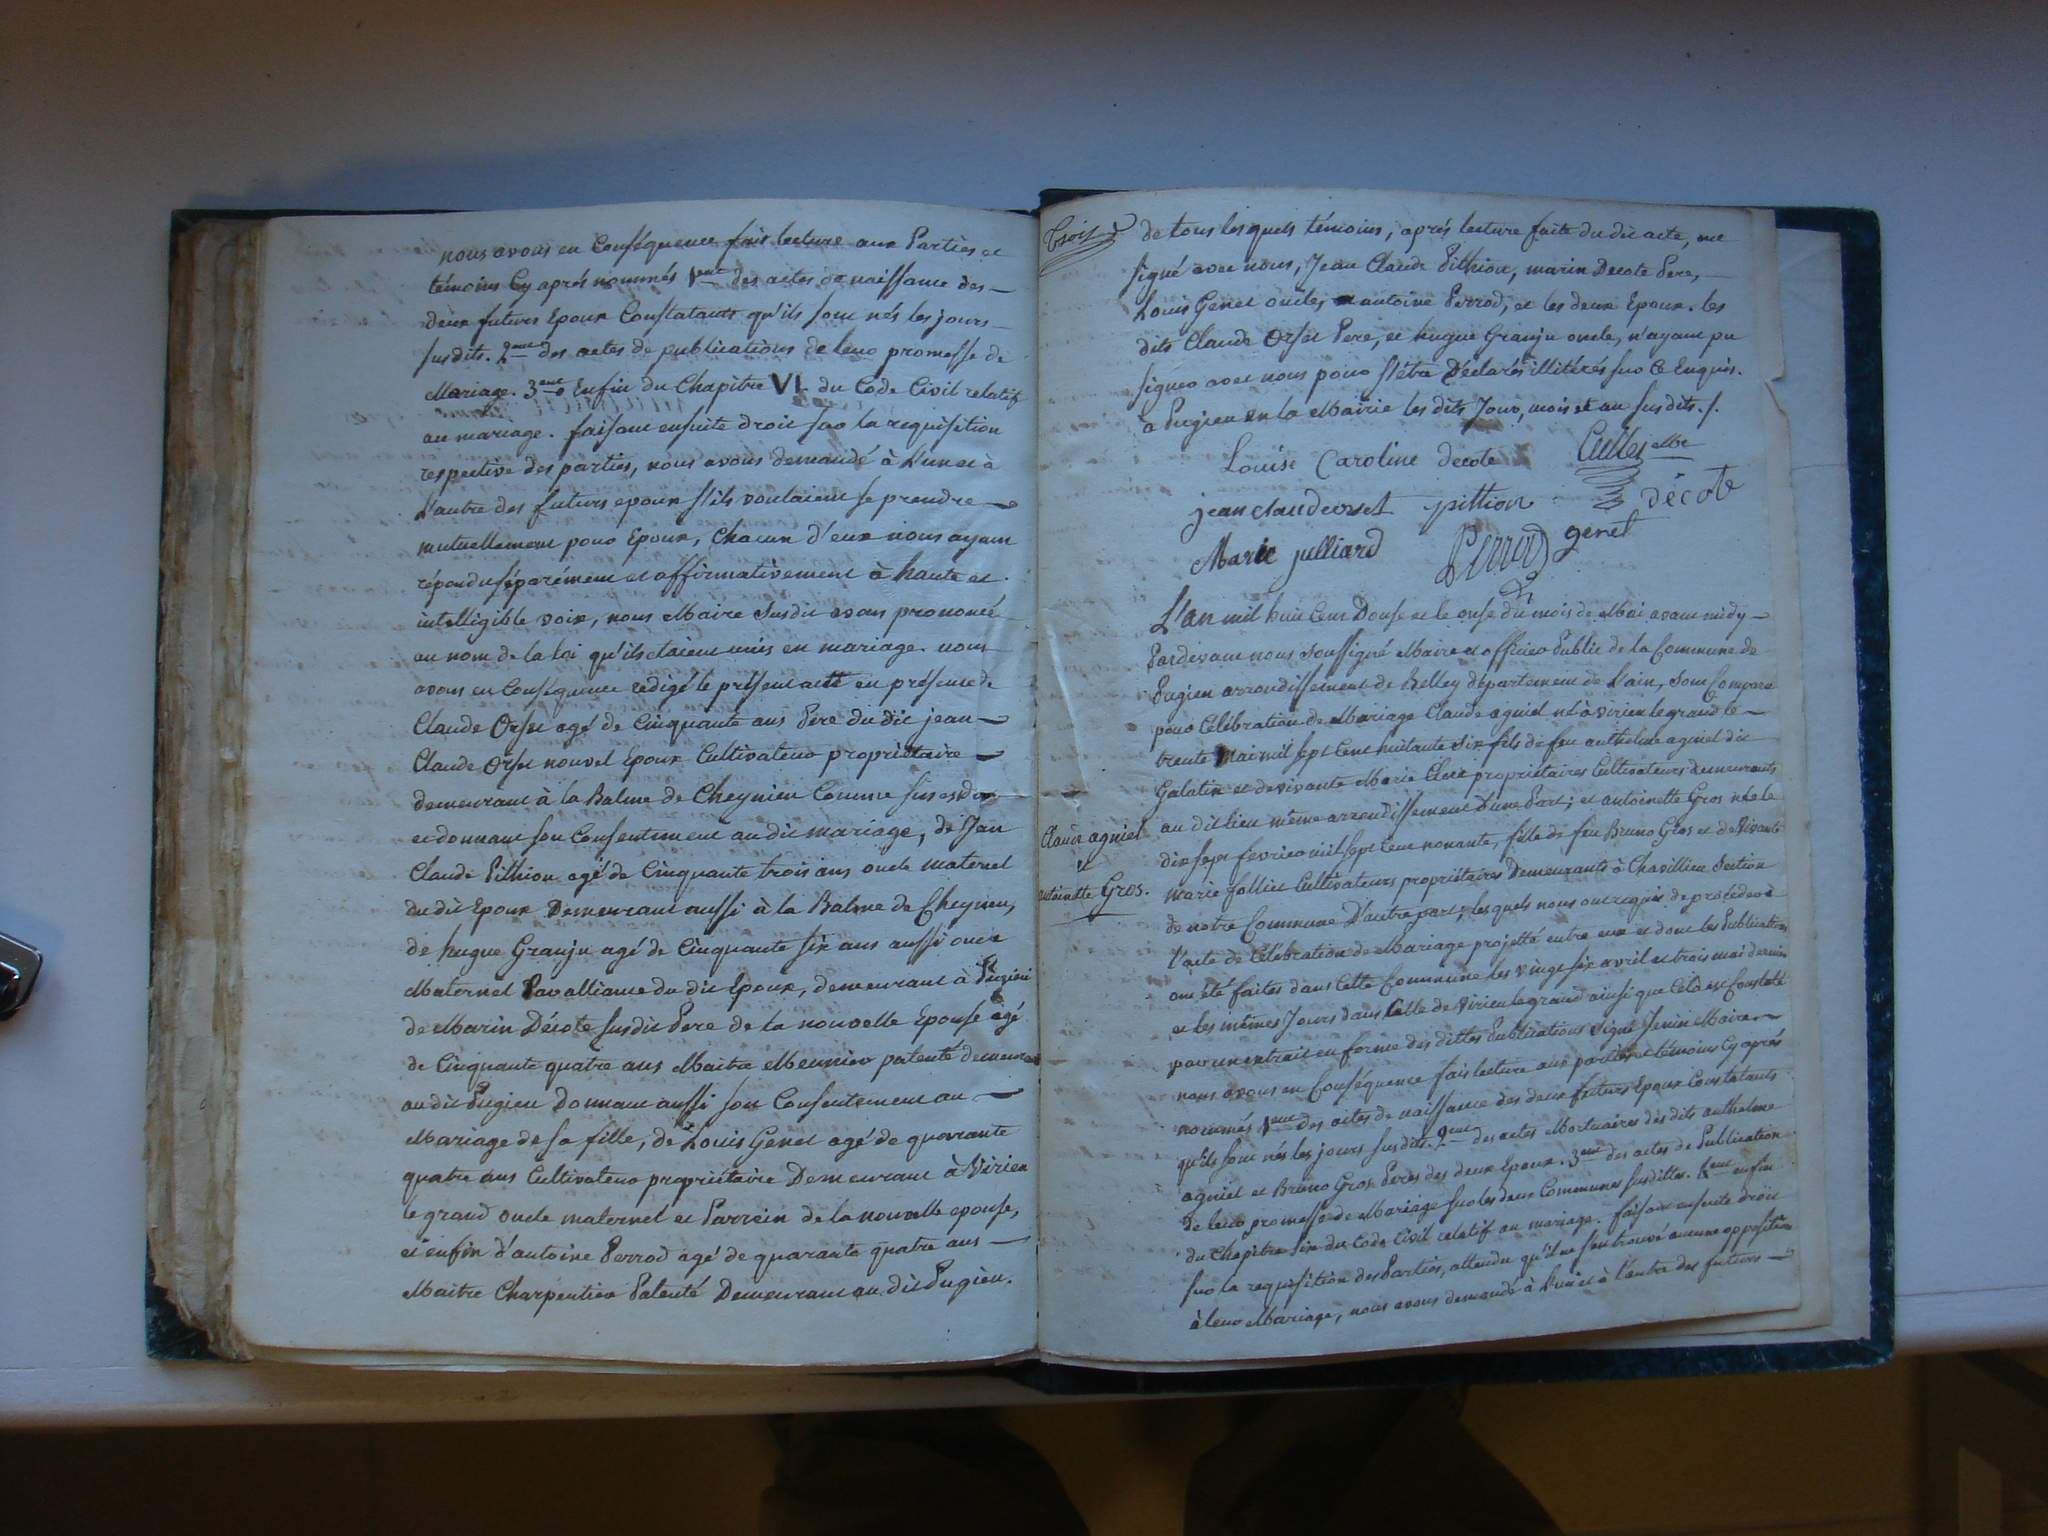 nous avons en Conséquence fais lecture aux Parties et
témoins Cy aprés nommés 1ment des actes de naissance des
deux futurs Epoux Constatants qu'ils sont nés les jours
susdits. 2ment des actes de publications de leur promesse de
Mariage. 3ment Enfin du Chapitre VI. du Code Civil relatif
au mariage. faisant ensuite droit sur la requisition
respective des parties, nous avons demandé à L'un et à
L'autre des futurs epoux s'ils voulaient se prendre
mutuellement pour Epoux, Chacun d'eux nous ayant
répondu séparément et affirmativement à haute et
intelligible voix, nous Maire susdit avons prononcé
au nom de la loi qu'ils étaient unis en mariage. nous
avons en Conséquence redigé le présent acte en présence de
Claude Orset agé de Cinquante ans Pere du dit jean
Claude Orset nouvel Epoux Cultivateur propriétaire
demeurant à la Balme de Cheynieu Comme sus est dit
et donnant son Consentement au dit mariage, de Jean
Claude Pithion agé de Cinquante trois ans oncle maternel
du dit Epoux Demeurant aussi à la Balme de Cheynieu,
de hugue Granju agé de Cinquante six ans aussi oncle
Maternel Par alliance du dit Epoux, demeurant à Pugieu
de Marin Décote susdit Pere de la nouvelle Epouse agé
de Cinquante quatre ans Maitre Meunier patenté demeurant
au dit Pugieu Donnant aussi son Consentement au
Mariage de sa fille, de Louis Genet agé de quarante
quatre ans Cultivateur propriétaire Demeurant à Virieu
le grand oncle maternel et Parrein de la nouvelle epouse,
et enfin d'antoine Perrod agé de quarante quatre ans
Maitre Charpentier Patenté Demeurant au dit Pugieu.
trois
de tous lesquels témoins, aprés lecture faite du dit acte, ont
signé avec nous, Jean Claude Pithion, marin Decote Pere,
Louis Genet oncles antoine Perrod, et les deux Epoux. les
dits Claude Orset Pere, et hugue Granju oncle, n'ayant pu
signer avec nous pour s'être Déclarés illitérés sur Ce Enquis.
a Pugieu en la Mairie les dits Jour, mois et an susdits./.
Louise Caroline decote
jean claude orset pittion décote
Marie julliard Perrod genet
L'an mil huit Cent Douse et le onse du mois de Mai avant midy
Pardevant nous soussigné Maire et officier Public de la Commune de
Pugieu arrondissement de Belley département de L'ain, sont Comparu
pour Célébration de Mariage Claude agniel né à virieu le grand le
trente Mai mil sept Cent huitante six fils de feu anthelme agniel dit
Galatin et de vivante Marie propriétaires Cultivateurs demeurants
au dit lieu même arrondissement D'une Part; et antoinette Gros née le
Claude agniel
et
antoinette Gros.
dix sept fevrier mil sept Cent nonante, fille de feu Bruno Gros et de Vivante
marie follict Cultivateurs propriétaires Demeurants à Chavillieu Section
de notre Commune D'autre part; lesquels nous ont requis de procéder à
l'acte de Célébration de Mariage projetté entre eux et dont les Publications
ont été faites dans Cette Commune les vingt six avril et trois mai dernier
et les mêmes Jours dans Celle de Virieu le grand ainsi que Cela est Constaté
par un extrait en forme des dittes Publications signé Jenin Maire
nous avons en Conséquence fais lecture aux parties et témoins Cy aprés
nommés 1ment Des actes de naissance des deux futurs Epoux Constatants
qu'ils sont nés les jours susdits. 2ment des actes Mortuaires des dits anthelme
agniel et Bruno Gros Peres des deux Epoux. 3ment des actes de Publication
de leur promesse de Mariage sur les deux Communes susdittes. 4ment enfin
du Chapitre six du Code Civil relatif au mariage. faisant ensuite droit
sur la requisition des Parties, attendu qu'il ne s'est trouvé aucune opposition
à leur Mariage, nous avons demandé à L'un et à l'autre des futurs